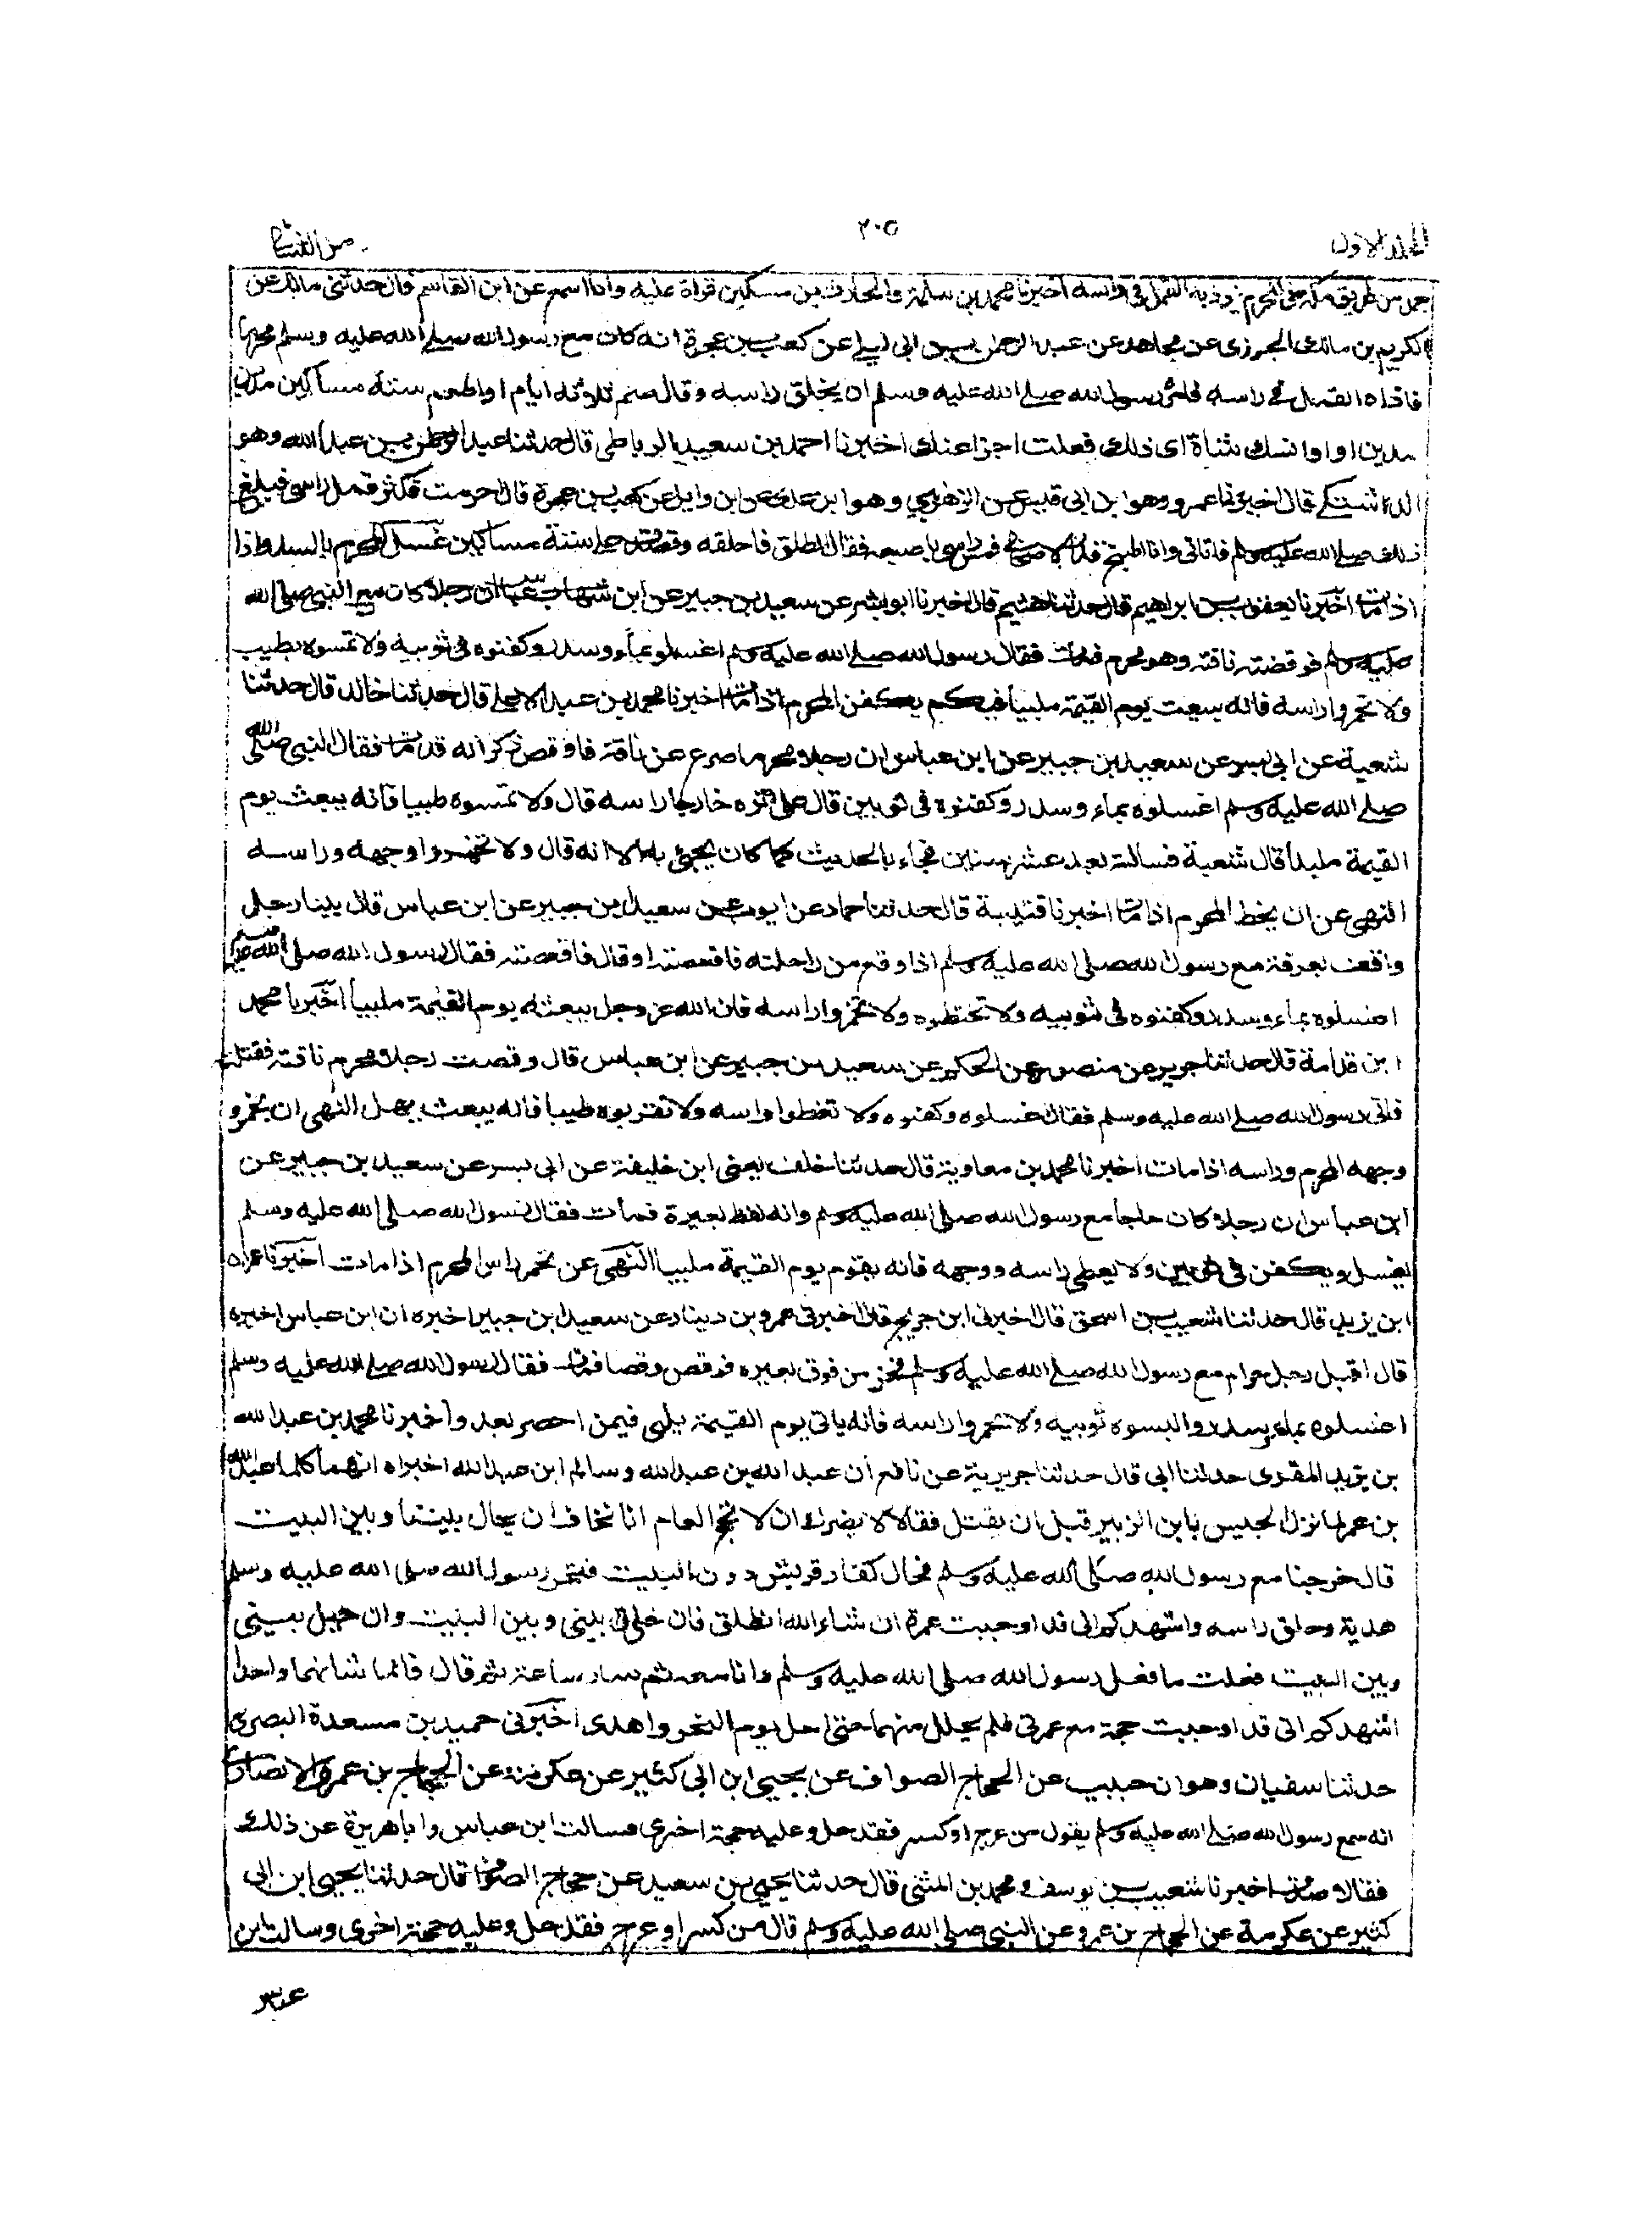 المجلد الاول ٢٠٥ من النسائي
جمل من طريق مكة في المحرم يوذيه القمل في راسه اخبرنا محمد بن سلمة والحارث بن مسكين قراة عليه وانا اسمع عن ابن القاسم قال حدثني مالك عن
الكريم بن مالك الجزري عن مجاهد عن عبد الرحمن بن ابي ليلى عن كعب بن عجرة انه كان مع رسول الله صلى الله عليه وسلم محرما
فاذاه القمل في راسه فامره رسول الله صلى الله عليه وسلم ان يحلق راسه وقال صم ثلاثة ايام او اطعم ستة مساكين مدين
مدين او انسك شاة اى ذلك فعلت اجزا عنك اخبرنا احمد بن سعيد الرباطي قال حدثنا عبد الرحمن بن عبد الله وهو
الدشتكي قال اخبرنا عمرو وهو ابن ابي قيس عن الزهري وهو ابن عدى عن ابي وايل عن كعب بن عجرة قال احرمت فكثر قمل راسى فبلغ
ذلك صلى الله عليه وسلم فاتاني وانا اطبخ قدرا لاصحابي فمس راسي باصبعه فقال انطلق فاحلقه وتصدق على ستة مساكين غسل المحرم بالسدر اذا
اذا مات اخبرنا يعقوب بن ابراهيم قال حدثنا هشيم قال اخبرنا ابو بشر عن سعيد بن جبير عن ابن عباس ان رجلا كان مع النبي صلى الله
عليه وسلم فوقصته ناقته وهو محرم فمات فقال رسول الله صلى الله عليه وسلم اغسلوه بماء وسدر وكفنوه في ثوبيه ولا تمسوه بطيب
ولا تخمروا راسه فانه يبعث يوم القيمة ملبيا في كم يكفن المحرم اذا مات اخبرنا محمد بن عبد الاعلى قال حدثنا خالد قال حدثنا
شعبة عن ابي بشر عن سعيد بن جبير عن ابن عباس ان رجلا محرما صرع عن ناقة فاوقص ذكر انه قد مات فقال النبي صلى الله
صلى الله عليه وسلم اغسلوه بماء وسدر وكفنوه في ثوبين قال على اثره خارجا راسه قال ولا تمسوه طيبا فانه يبعث يوم
القيمة ملبدا قال شعبة فسالته بعد عشر سنين فجاء بالحديث كما كان يجيئ به الا انه قال ولا تخمروا وجهه وراسه
النهى عن ان يحنط المحرم اذا مات اخبرنا قتيبة قال حدثنا حماد عن ايوب عن سعيد بن جبير عن ابن عباس قال بينا رجل
واقف بعرفة مع رسول الله صلى الله عليه وسلم اذا وقع من راحلته فاقعصته او قال فاقعصته فقال رسول الله صلى الله عليه وسلم
اغسلوه بماء وسدر وكفنوه في ثوبيه ولا تحنطوه ولا تخمروا راسه فان الله عز وجل يبعثه يوم القيمة ملبيا اخبرنا محمد
ابن قدامة قال حدثنا جرير عن منصور عن الحكم عن سعيد بن جبير عن ابن عباس قال وقصت رجلا محرم ناقته فقتلته
فاتى رسول الله صلى الله عليه وسلم فقال اغسلوه وكفنوه ولا تغطوا راسه ولا تقربوه طيبا فانه يبعث يهل النهى ان يخمرو
وجهه المحرم وراسه اذا مات اخبرنا محمد بن معاوية قال حدثنا خلف يعنى ابن خليفة عن ابي بسر عن سعيد بن جبير عن
ابن عباس ان رجلا كان حاجا مع رسول الله صلى الله عليه وسلم وانه لفظ بعيره فمات فقال رسول الله صلى الله عليه وسلم
يغسل ويكفن في ثوبين ولا يعطى راسه ووجهه فانه يقوم يوم القيمة ملبيا النهى عن تخمر راس المحرم اذا مات اخبرنا عمران
ابن يزيد قال حدثنا شعيب بن اسحق قال اخبرني ابن جريج قال اخبرني عمرو بن دينار عن سعيد بن جبير اخبره ان ابن عباس اخبره
قال اقبل رجل حرام مع رسول الله صلى الله عليه وسلم فخر من فوق بعيره فوقص وقصا فمات فقال رسول الله صلى الله عليه وسلم
اغسلوه بماء وسدر والبسوه ثوبيه ولا تخمروا راسه فانه ياتي يوم القيمة يلبى فيمن احصر بعد و اخبرنا محمد بن عبد الله
بن يزيد المقرى حدثنا ابي قال حدثنا جويرية عن نافع ان عبد الله بن عبد الله وسالم ابن عبد الله اخبراه انهما كلما عبد الله
بن عمر لما نزل الجيس بابن الزبير قبل ان يقتل فقالا لا يضرك ان لا تحج العام انا نخاف ان يحال بيننا وبين البيت
قال خرجنا مع رسول الله صلى الله عليه وسلم فحال كفار قريش دون البيت فنحر رسول الله صلى الله عليه وسلم
هديه وحلق راسه واشهدكم اني قد اوجبت عمرة ان شاء الله انطلق فان خلى بيني وبين البيت وان حيل بيني
وبين البيت فعلت ما فعل رسول الله صلى الله عليه وسلم وانا معه ثم سار ساعة ثم قال فانما شانهما واحد
اشهدكم اني قد اوجبت حجة مع عمرتي فلم يحلل منهما حتى احل يوم النحر واهدى اخبرني حميد بن مسعدة البصرى
حدثنا سفيان وهو ان حبيب عن الحجاج الصواف عن يحيى ابن ابي كثير عن عكرمة عن الحجاج بن عمرو الانصارى
انه سمع رسول الله صلى الله عليه وسلم يقول من عرج او كسر فقد حل وعليه حجة اخرى فسالت ابن عباس وابا هريرة عن ذلك
فقالا صدق اخبرنا شعيب بن يوسف ومحمد بن المثنى قال حدثنا يحيى بن سعيد عن حجاج الصواف قال حدثنا يحيى ابن ابي
كثير عن عكرمة عن الحجاج بن عمرو عن النبي صلى الله عليه وسلم قال من كسر او عرج فقد حل وعليه حجة اخرى وسالت ابن
عباس